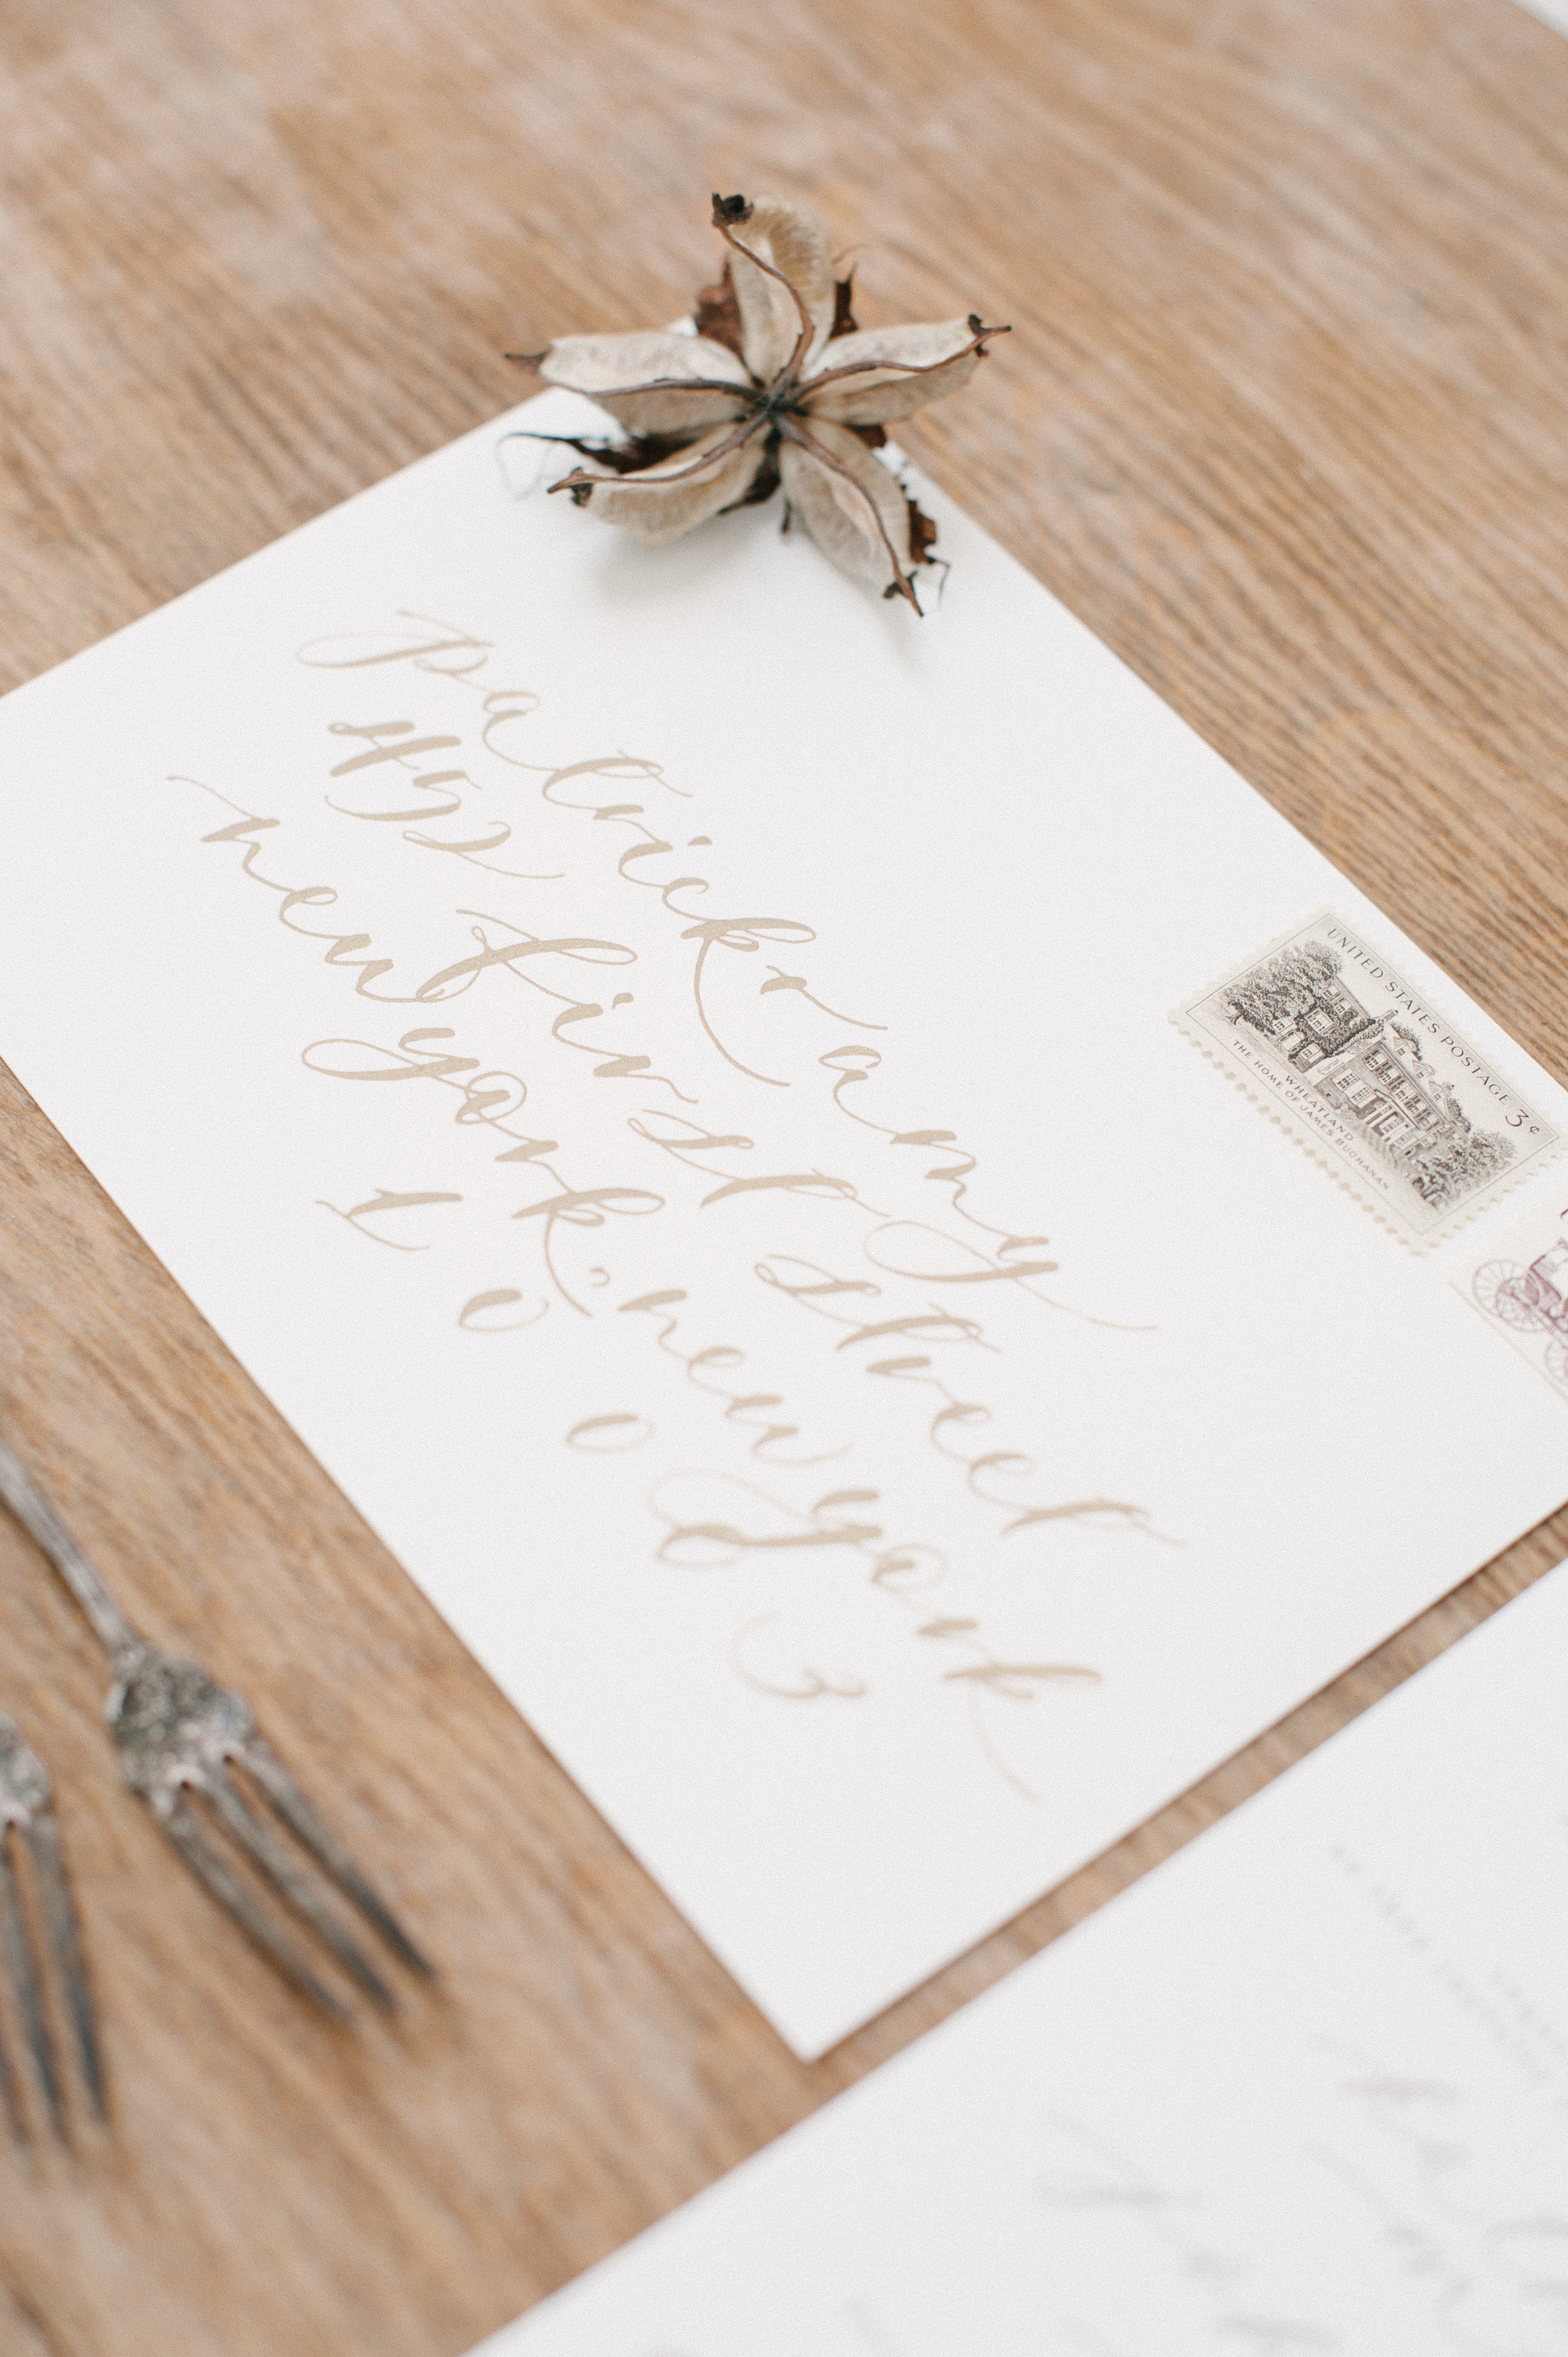 Patrick & amy
452 first street
new york, new york
1 0 0 0 3
UNITED STATES POSTAGE 3¢
WHEATLAND
THE HOME OF JAMES BUCHANAN